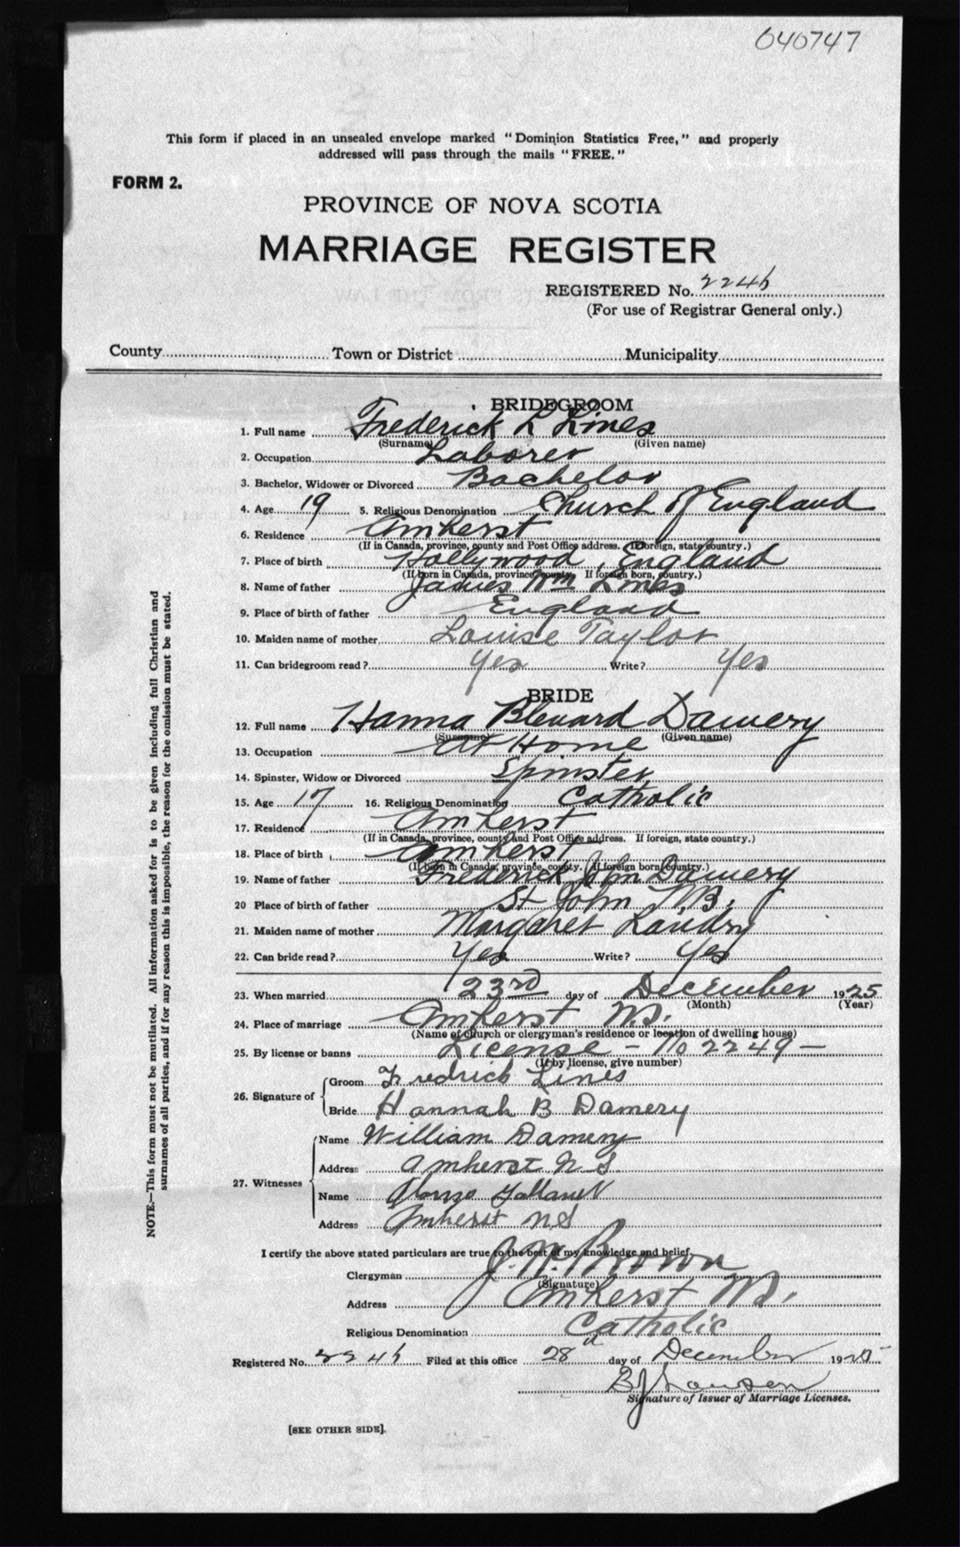 040747
This form if placed in an unsealed envelope marked "Dominion Statistics Free," and properly
addressed will pass through the mails "FREE."
FORM 2.
PROVINCE OF NOVA SCOTIA
MARRIAGE REGISTER
REGISTERED No.
(For use of Registrar General only.)
County Town or District Municipality
BRIDEGROOM
1. Full name Frederick L
(Surname) (Given name)
2. Occupation Laborer
3. Bachelor, Widower or Divorced Bachelor
4. Age 19 5. Religious Denomination Church of England
6. Residence Amherst
(If in Canada, province, county and Post Office address. If foreign, state country.)
7. Place of birth Hollywood, England
(If born in Canada, province, county. If foreign born, country.)
8. Name of father James Wm
9. Place of birth of father England
10. Maiden name of mother Louise Taylor
11. Can bridegroom read? Yes Write? Yes
BRIDE
12. Full name Hanna Damery
(Surname) (Given name)
13. Occupation At Home
14. Spinster, Widow or Divorced Spinster
15. Age 17 16. Religious Denomination Catholic
17. Residence Amherst
(If in Canada, province, county and Post Office address. If foreign, state country.)
18. Place of birth Amherst
(If born in Canada, province, county. If foreign born, country.)
19. Name of father Frederick John Damery
20 Place of birth of father St John N.B.
21. Maiden name of mother Margaret Landry
22. Can bride read? Yes Write? Yes
23. When married 23rd day of December 1925
(Month) (Year)
24. Place of marriage Amherst N.S.
(Name of church or clergyman's residence or location of dwelling house)
25. By license or banns License - No 2249 -
(If by license, give number)
26. Signature of
Groom Fredrick Lines
Bride Hannah B Damery
27. Witnesses
Name William Damery
Address Amherst N S.
Name Alonzo
Address Amherst N S
I certify the above stated particulars are true to the best of my knowledge and belief.
Clergyman J. W. Brown
(Signature)
Address Amherst N.S.
Religious Denomination Catholic
Registered No. Filed at this office 28 day of December 1925
Signature of Issuer of Marriage Licenses.
[SEE OTHER SIDE].
NOTE.—This form must not be mutilated. All information asked for is to be given including full Christian and
surnames of all parties, and if for any reason this is impossible, the reason for the omission must be stated.